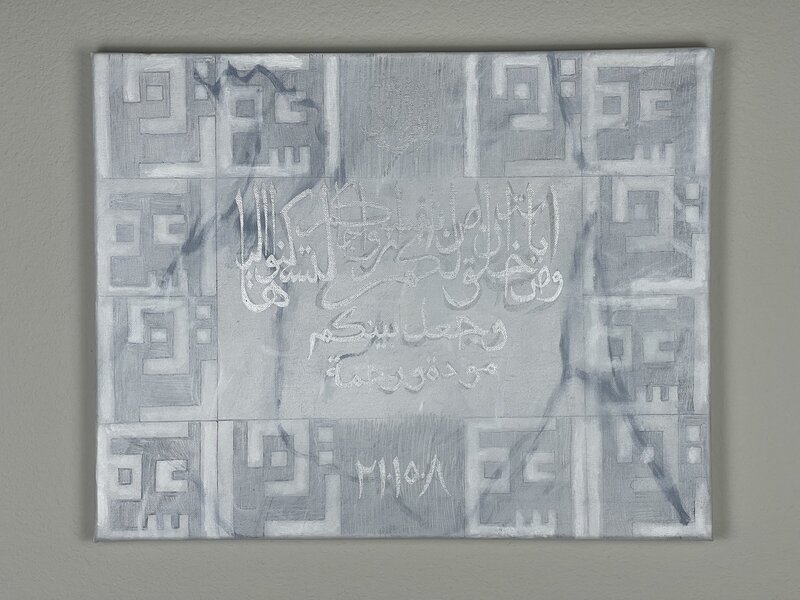 ومن آياته أن خلق لكم من أنفسكم أزواجا لتسكنوا إليها
وجعل بينكم
مودة ورحمة
٢١.١٥.٨